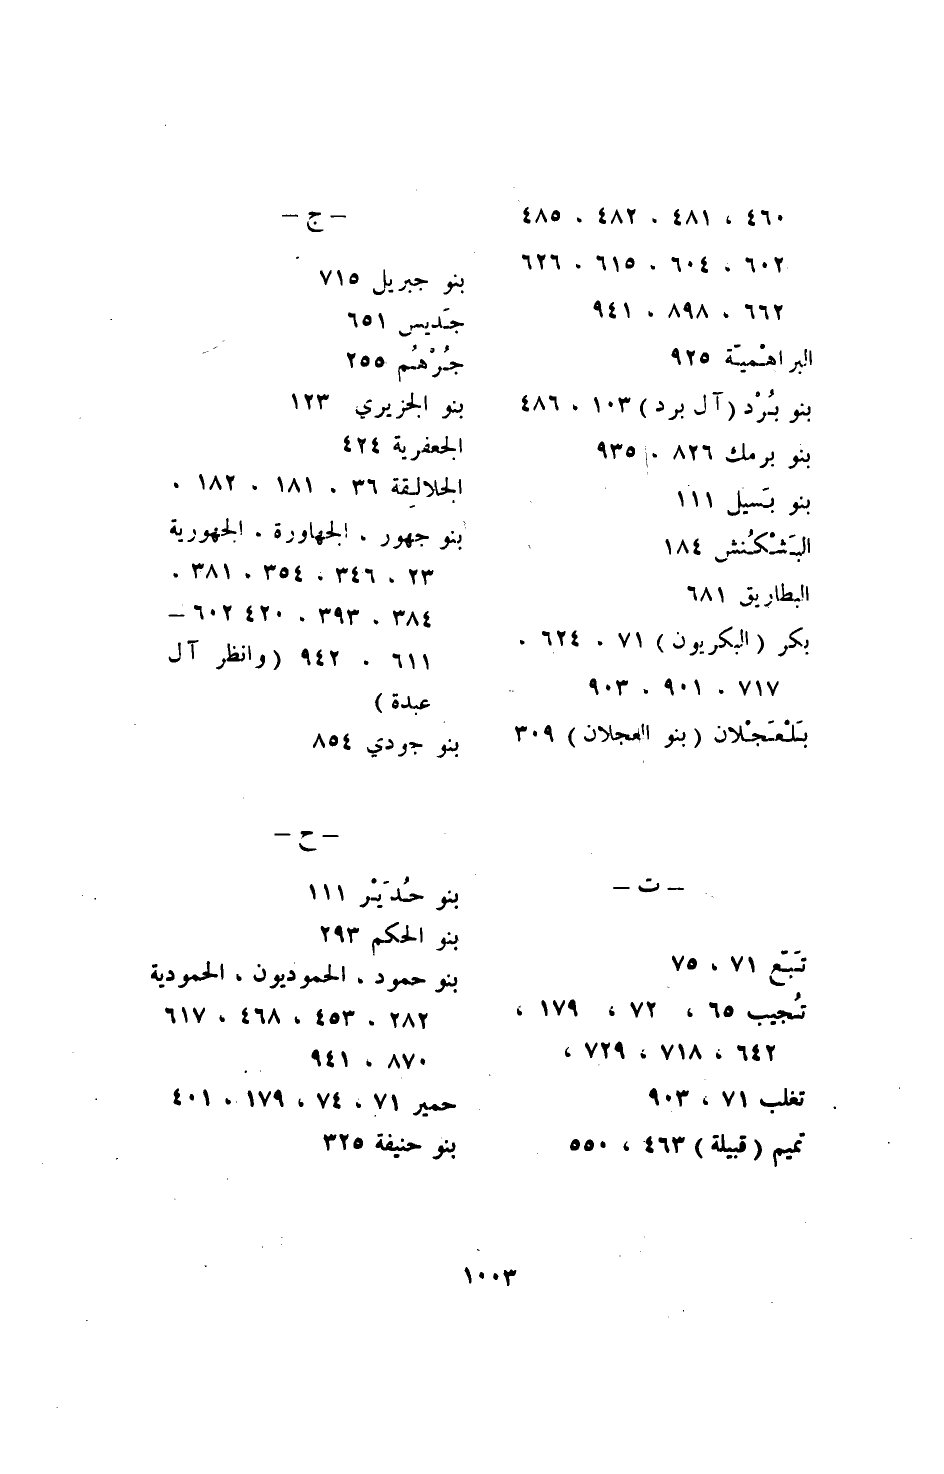 ٤٦٠ ، ٤٨١ ، ٤٨٢ ، ٤٨٥
٦٠٢ ، ٦٠٤ ، ٦١٥ ، ٦٢٦
٦٦٢ ، ٨٩٨ ، ٩٤١
البراهْميّة ٩٢٥
بنو بُرْد (آل برد) ١٠٣ ، ٤٨٦
بنو برمك ٨٢٦ ، ٩٣٥
بنو بَسيل ١١١
البَشْكُنش ١٨٤
البطاريق ٦٨١
بكر (البكريون) ٧١ ، ٦٢٤ ،
٧١٧ ، ٩٠١ ، ٩٠٣
بَلْعَجْلان (بنو العجلان) ٣٠٩
– ت –
تَبّع ٧١ ، ٧٥
تُجيب ٦٥ ، ٧٢ ، ١٧٩ ،
٦٤٢ ، ٧١٨ ، ٧٢٩ ،
تغلب ٧١ ، ٩٠٣
تميم (قبيلة) ٤٦٣ ، ٥٥٠
– ج –
بنو جبريل ٧١٥
جَديس ٦٥١
جُرْهُم ٢٥٥
بنو الجزيري ١٢٣
الجعفرية ٤٢٤
الجلالِقة ٣٦ ، ١٨١ ، ١٨٢ ،
بنو جهور ، الجهاورة ، الجهورية
٢٣ ، ٣٤٦ ، ٣٥٤ ، ٣٨١ ،
٣٨٤ ، ٣٩٣ ، ٤٢٠ ٦٠٢ –
٦١١ ، ٩٤٢ (وانظر آل
عبدة)
بنو جودي ٨٥٤
– ح –
بنو حُدَيْر ١١١
بنو الحكم ٢٩٣
بنو حمود ، الحموديون ، الحمودية
٢٨٢ ، ٤٥٣ ، ٤٦٨ ، ٦١٧
٨٧٠ ، ٩٤١
حمير ٧١ ، ٧٤ ، ١٧٩ ، ٤٠١
بنو حنيفة ٣٢٥
١٠٠٣